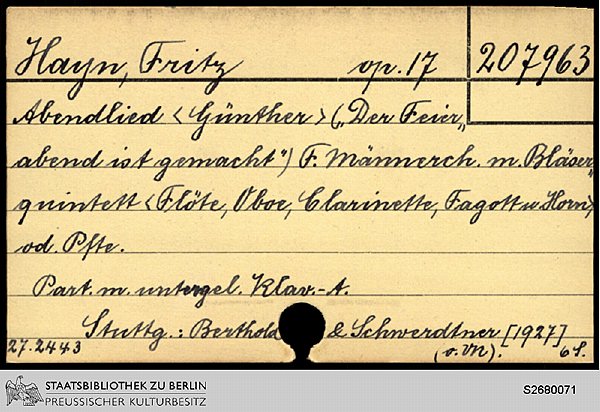 Hayn, Fritz op. 17 207963
Abendlied < Günther > („Der Feier„
abend ist gemacht") F. Männerch. m. Bläser„
quintett < Flöte, Oboe, Clarinette, Fagott u. Horn >
od. Pfte.
Part. m. untergel. Klav.-A.
Stuttg.: Berthold & Schwerdtner [1927]
27.2443 (o. VN). 6 S.
STAATSBIBLIOTHEK ZU BERLIN
PREUSSISCHER KULTURBESITZ
S2680071